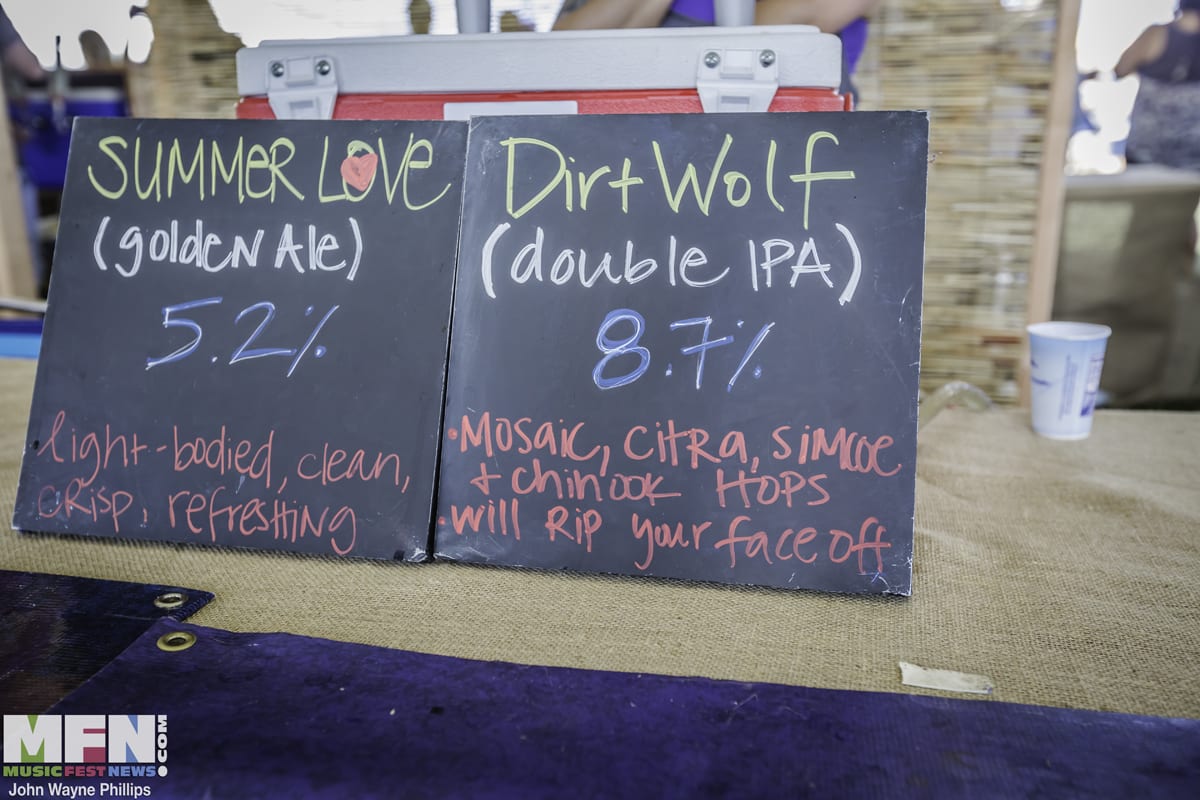 SUMMER LOVE
(golden Ale)
5.2%
light-bodied, clean,
crisp, refreshing
Dirt Wolf
(double IPA)
8.7%
•Mosaic, Citra, Simcoe
+ Chinook Hops
•will Rip your face off
MFN.COM
MUSICFESTNEWS!
John Wayne Phillips